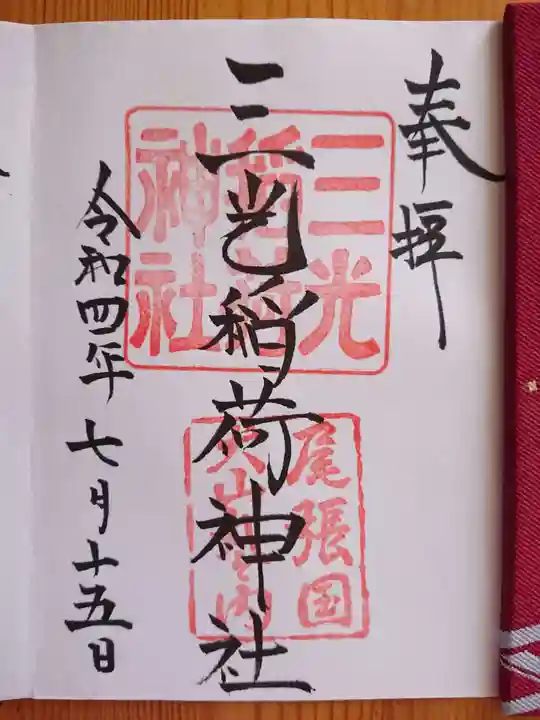 奉拝
三光稲荷神社
令和四年七月十五日
三光
稲荷
神社
尾張国
犬山城内